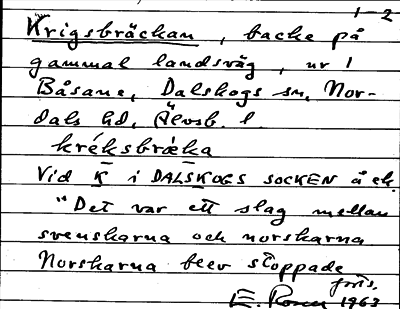 1-2
Krigsbräckan, backe på
gammal landsväg, nr 1
Båsane, Dalskogs sn, Nor-
dals hd, Älvsb. l.
kréksbrǽka
Vid K i DALSKOGS SOCKEN å ek.
"Det var ett slag mellan
svenskarna och norskarna
Norskarna blev stoppade
forts.
E. Rosen 1963